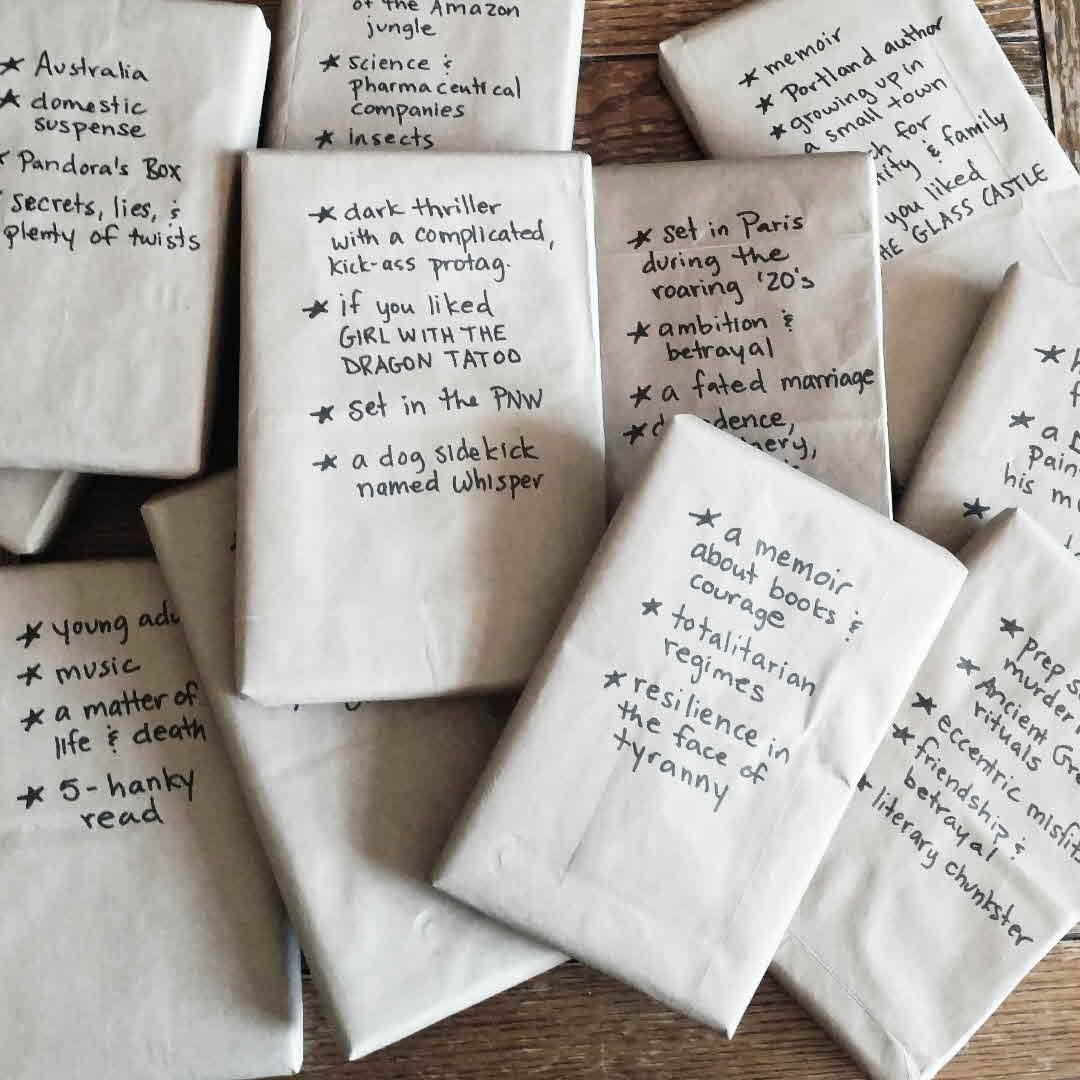 ★ Australia
★ domestic
suspense
★ Pandora's Box
secrets, lies, &
plenty of twists
of the Amazon
jungle
★ science &
pharmaceutical
companies
★ insects
★ memoir
★ Portland author
★ growing up in
a small town
for
& family
you liked
GLASS CASTLE
★ dark thriller
with a complicated,
kick-ass protag.
★ if you liked
GIRL WITH THE
DRAGON TATOO
★ set in the PNW
★ a dog sidekick
named Whisper
★ set in Paris
during the
roaring '20's
★ ambition &
betrayal
★ a fated marriage
★
★
★ a
his
★
★ young
★ music
★ a matter of
life & death
★ 5-hanky
read
★ a memoir
about books &
courage
★ totalitarian
regimes
★ resilience in
the face of
tyranny
★ prep
murder
★ Ancient
rituals
★ eccentric
★ friendship &
betrayal
★ literary chunkster